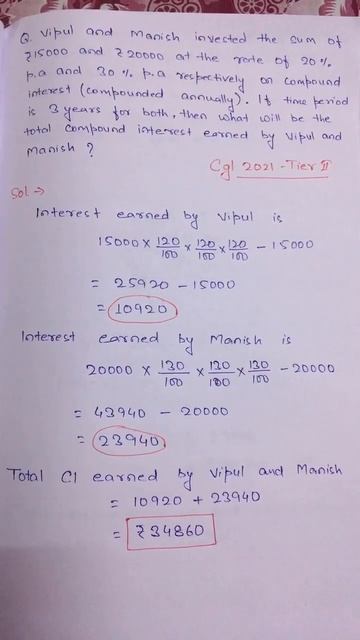 Q. Vipul and Manish invected the sum of
₹15000 and ₹20000 at the rate of 20%
p.a and 30% p.a respectively on compound
interest (compounded annually). If time period
is 3 years for both, then what will be the
total compound interest earned by Vipul and
Manish ?
Cgl 2021 - Tier II
Sol →
Interest earned by Vipul is
15000 × 120/100 × 120/100 × 120/100 - 15000
= 25920 - 15000
= 10920
Interest earned by Manish is
20000 × 130/100 × 130/100 × 130/100 - 20000
= 43940 - 20000
= 23940
Total CI earned by Vipul and Manish
= 10920 + 23940
= ₹34860